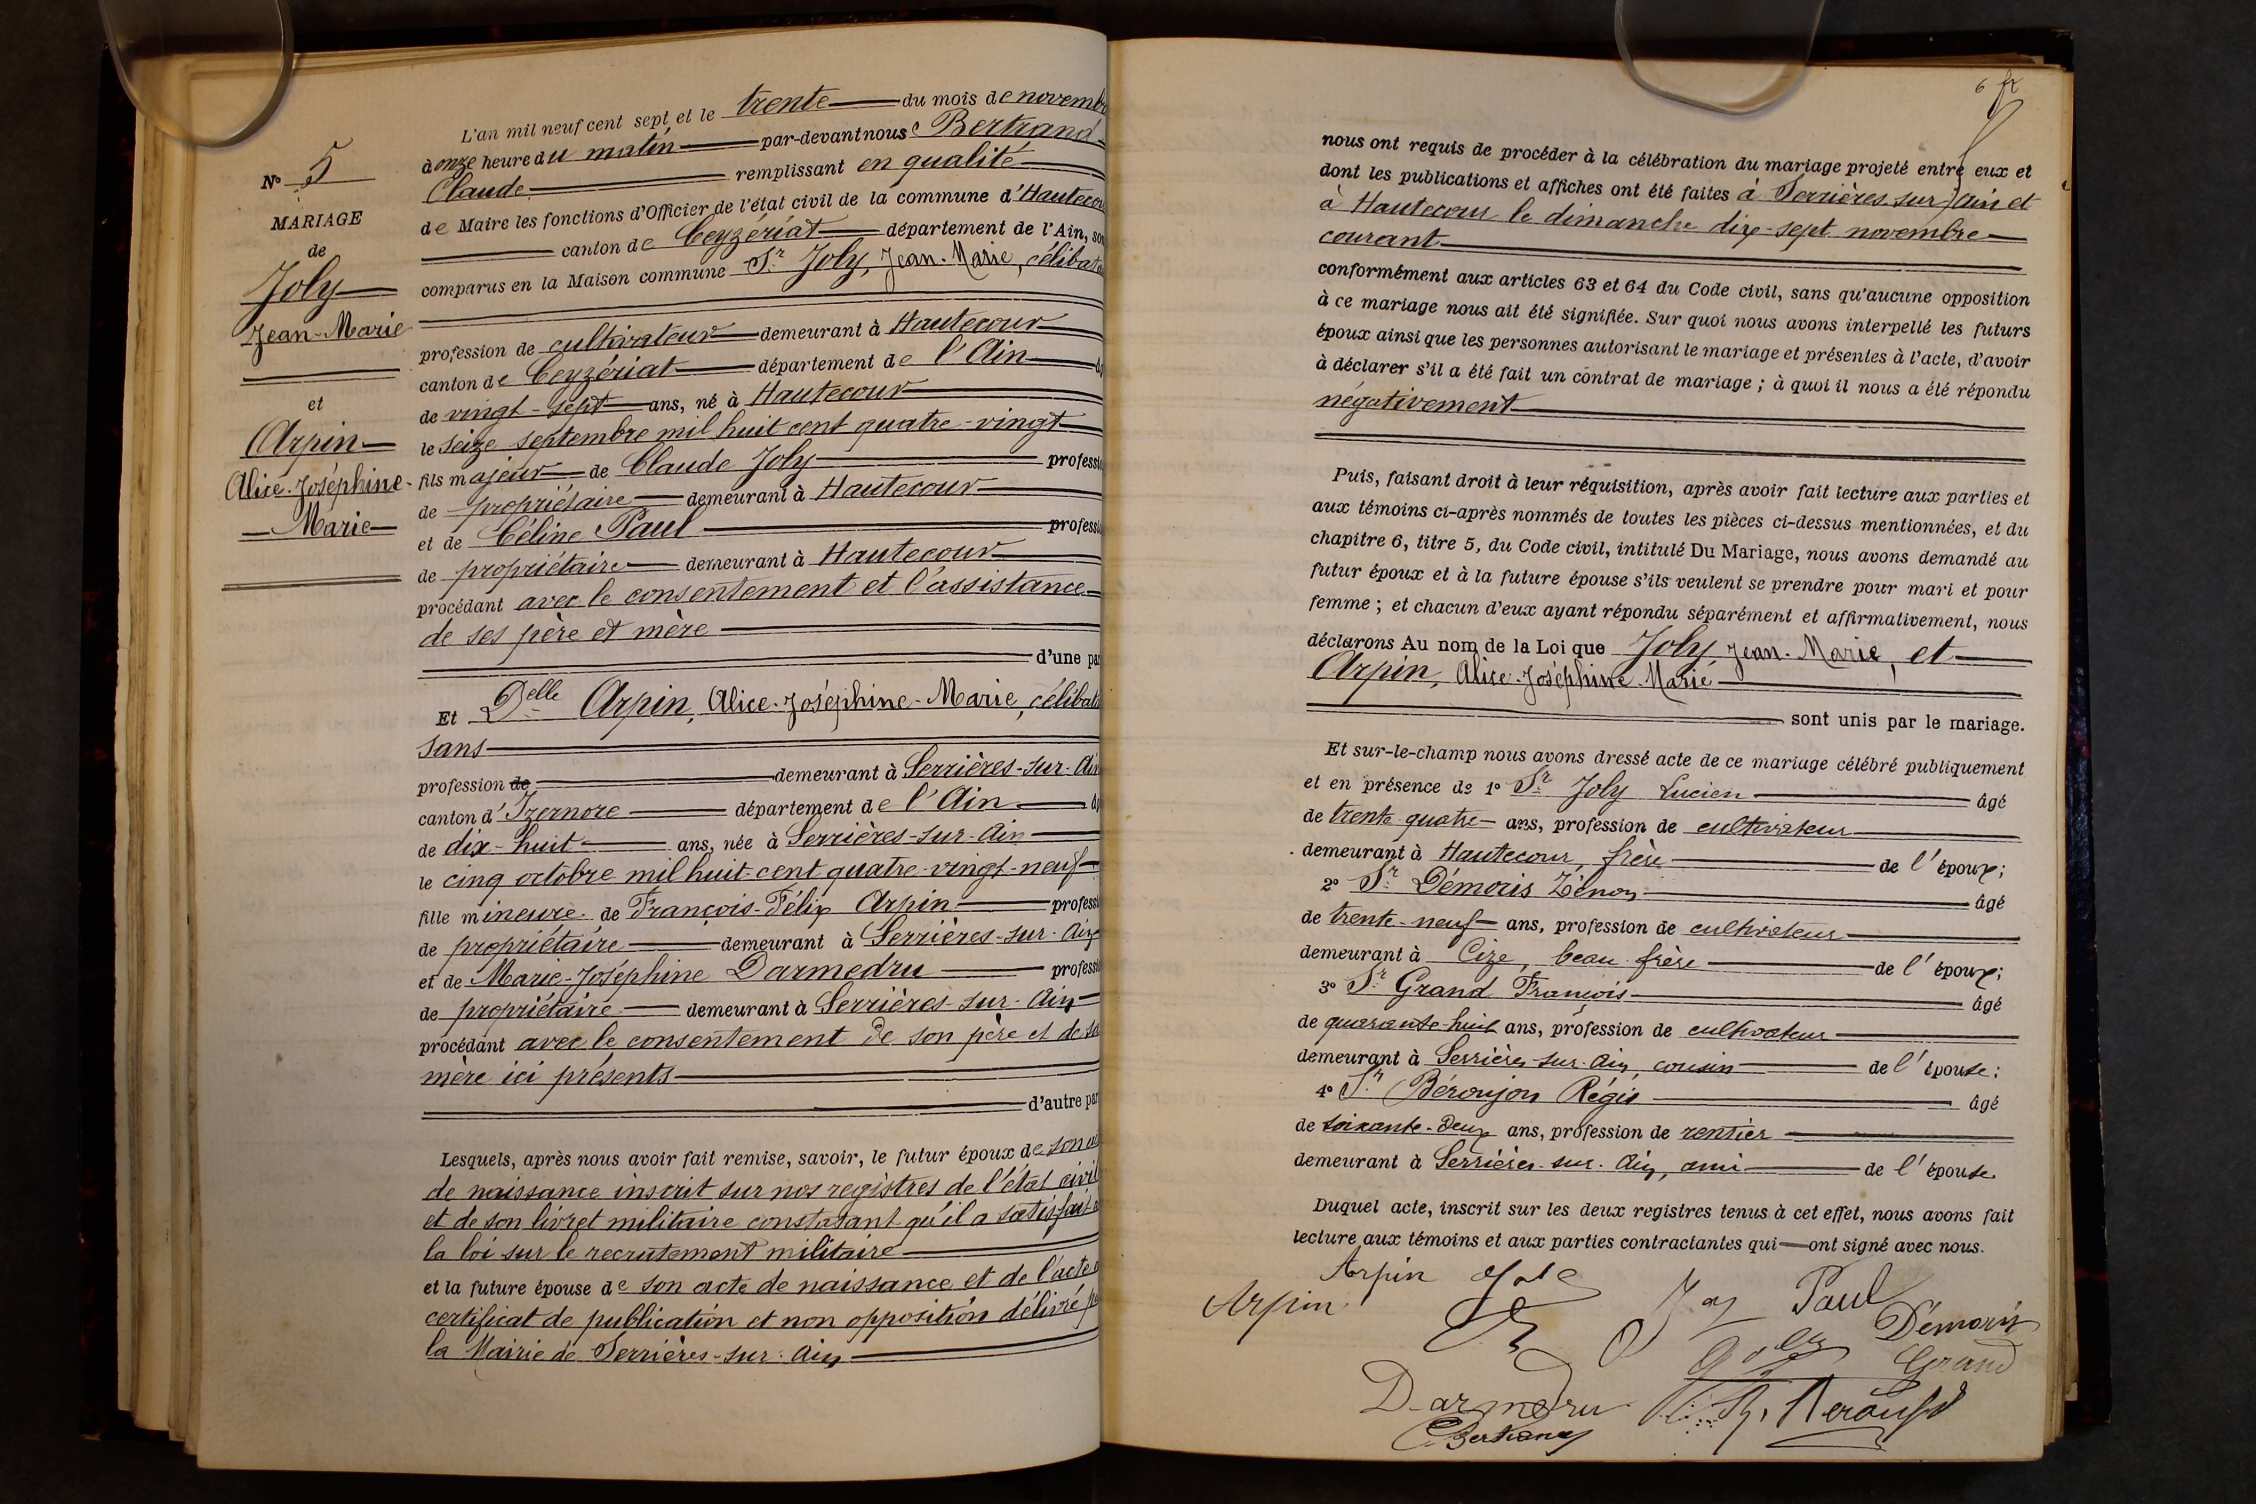 N° 5
MARIAGE
de
Joly
Jean-Marie
et
Arpin
Alice-Joséphine-
Marie
L'an mil neuf cent sept et le trente du mois de novembre
à onze heure du matin par-devant nous Bertrand
Claude remplissant en qualité
de Maire les fonctions d'Officier de l'état civil de la commune d'Hautecour
canton de Ceyzériat département de l'Ain, son
comparus en la Maison commune Sr Joly, Jean-Marie, célibata
profession de cultivateur demeurant à Hautecour
canton de Ceyzériat département de l'Ain
de vingt-sept ans, né à Hautecour
le seize septembre mil huit cent quatre-vingt
fils majeur de Claude Joly professio
de propriétaire demeurant à Hautecour
et de Céline Paul professio
de propriétaire demeurant à Hautecour
procédant avec le consentement et l'assistance
de ses père et mère
d'une par
Et Delle Arpin, Alice-Joséphine-Marie, célibata
sans
profession de demeurant à Serrières-sur-Ain
canton d'Izernore département de l'Ain
de dix-huit ans, née à Serrières-sur-Ain
le cinq octobre mil huit cent quatre-vingt-neuf
fille mineure de François-Félix Arpin professi
de propriétaire demeurant à Serrières-sur-Ain
et de Marie-Joséphine Darmedru professi
de propriétaire demeurant à Serrières-sur-Ain
procédant avec le consentement de son père et de sa
mère ici présents
d'autre par
Lesquels, après nous avoir fait remise, savoir, le futur époux de son
de naissance inscrit sur nos registres de l'état civil
et de son livret militaire constatant qu'il a satisfait à
la loi sur le recrutement militaire
et la future épouse de son acte de naissance et de l'acte
certificat de publication et non opposition délivré pa
la Mairie de Serrières-sur-Ain
6
nous ont requis de procéder à la célébration du mariage projeté entre eux et
dont les publications et affiches ont été faites à Serrières-sur-Ain et
à Hautecour le dimanche dix-sept novembre
courant
conformément aux articles 63 et 64 du Code civil, sans qu'aucune opposition
à ce mariage nous ait été signifiée. Sur quoi nous avons interpellé les futurs
époux ainsi que les personnes autorisant le mariage et présentes à l'acte, d'avoir
à déclarer s'il a été fait un contrat de mariage ; à quoi il nous a été répondu
négativement
Puis, faisant droit à leur réquisition, après avoir fait lecture aux parties et
aux témoins ci-après nommés de toutes les pièces ci-dessus mentionnées, et du
chapitre 6, titre 5, du Code civil, intitulé Du Mariage, nous avons demandé au
futur époux et à la future épouse s'ils veulent se prendre pour mari et pour
femme ; et chacun d'eux ayant répondu séparément et affirmativement, nous
déclarons Au nom de la Loi que Joly Jean-Marie, et
Arpin, Alice-Joséphine-Marie
sont unis par le mariage.
Et sur-le-champ nous avons dressé acte de ce mariage célébré publiquement
et en présence de 1° Sr Joly Lucien âgé
de trente-quatre ans, profession de cultivateur
demeurant à Hautecour, frère de l'époux;
2° Sr Démoris Zénon âgé
de trente-neuf ans, profession de cultivateur
demeurant à Cize, beau-frère de l'époux;
3° Sr Grand François âgé
de quarante-huit ans, profession de cultivateur
demeurant à Serrières-sur-Ain, cousin de l'épouse;
4° Sr Béroujon Régis âgé
de soixante-deux ans, profession de rentier
demeurant à Serrières-sur-Ain, ami de l'épouse
Duquel acte, inscrit sur les deux registres tenus à cet effet, nous avons fait
lecture aux témoins et aux parties contractantes qui ont signé avec nous.
Arpin Paul
Arpin
Démoris
Grand
Darmedru
Bertrand